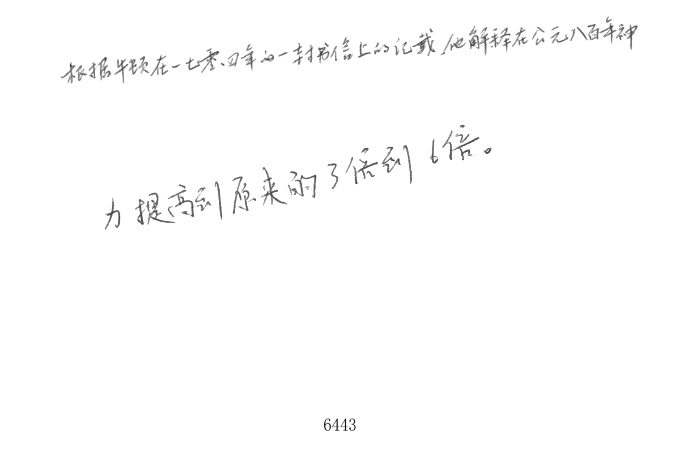 根据牛顿在一七零四年的一封书信上的记载,他解释在公元八百年神
力提高到原来的3倍到6倍。
6443